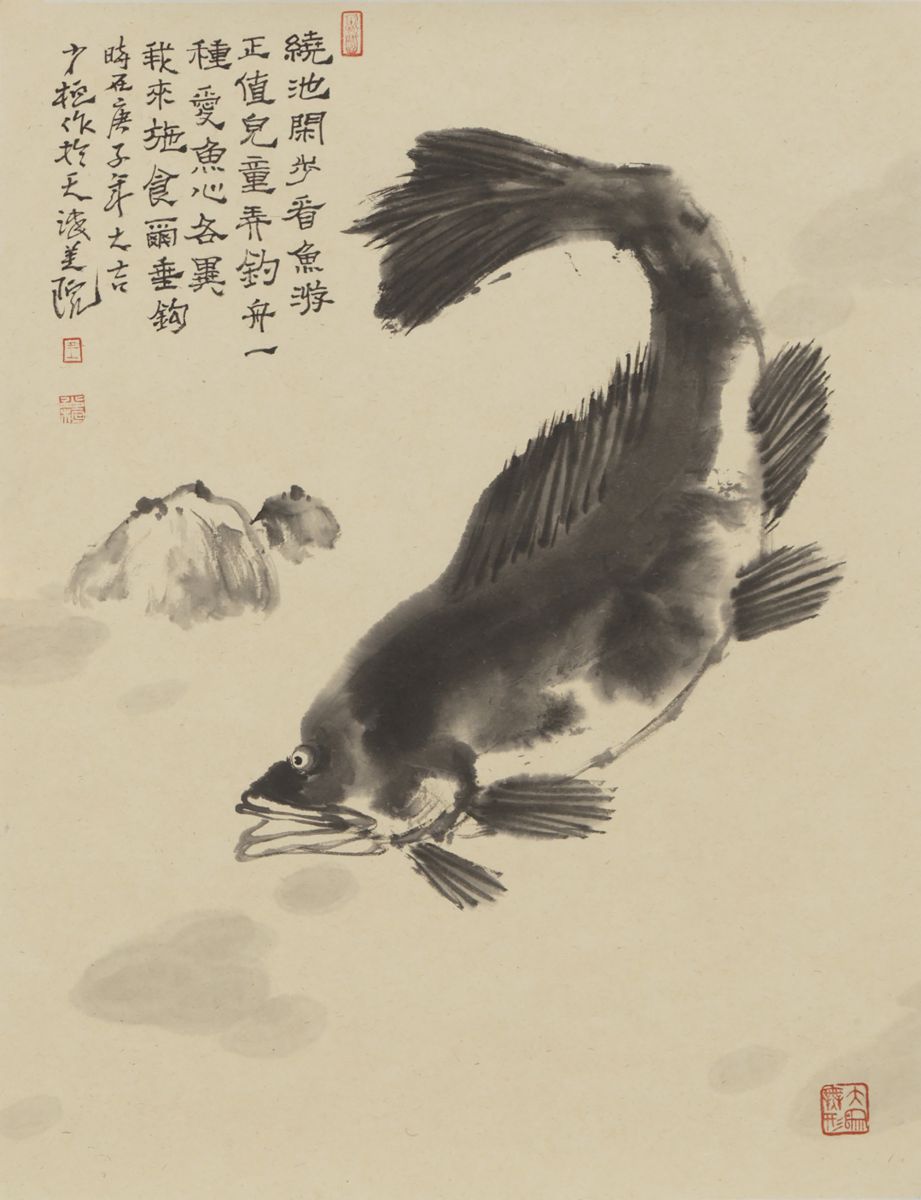 繞池閑步看魚游
正值兒童弄釣舟一
種愛魚心各異
我來施食爾垂鈎
時在庚子年大吉
少作於天美院
大象無形